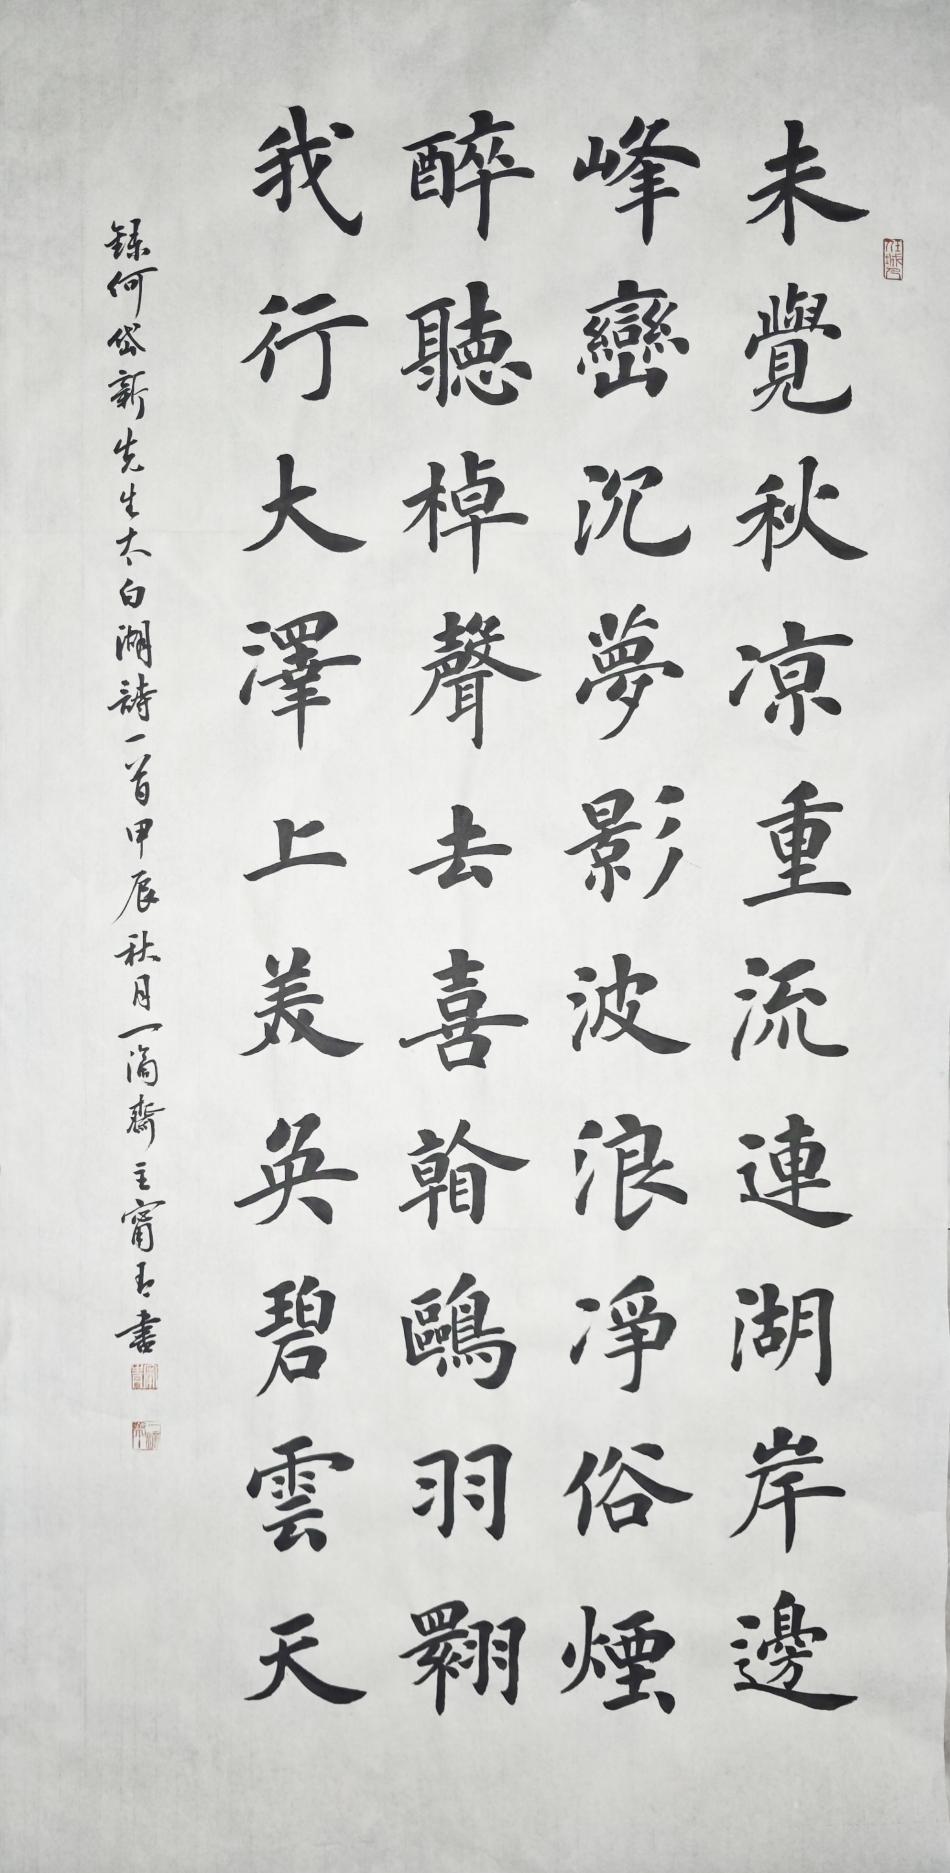 未覺秋凉重流連湖岸邊
峰巒沉夢影波浪凈俗煙
醉聽棹聲去喜翰鷗羽翾
我行大澤上美奂碧雲天
錄何岱新先生太白湖詩一首甲辰秋月一滴齋主甯青書